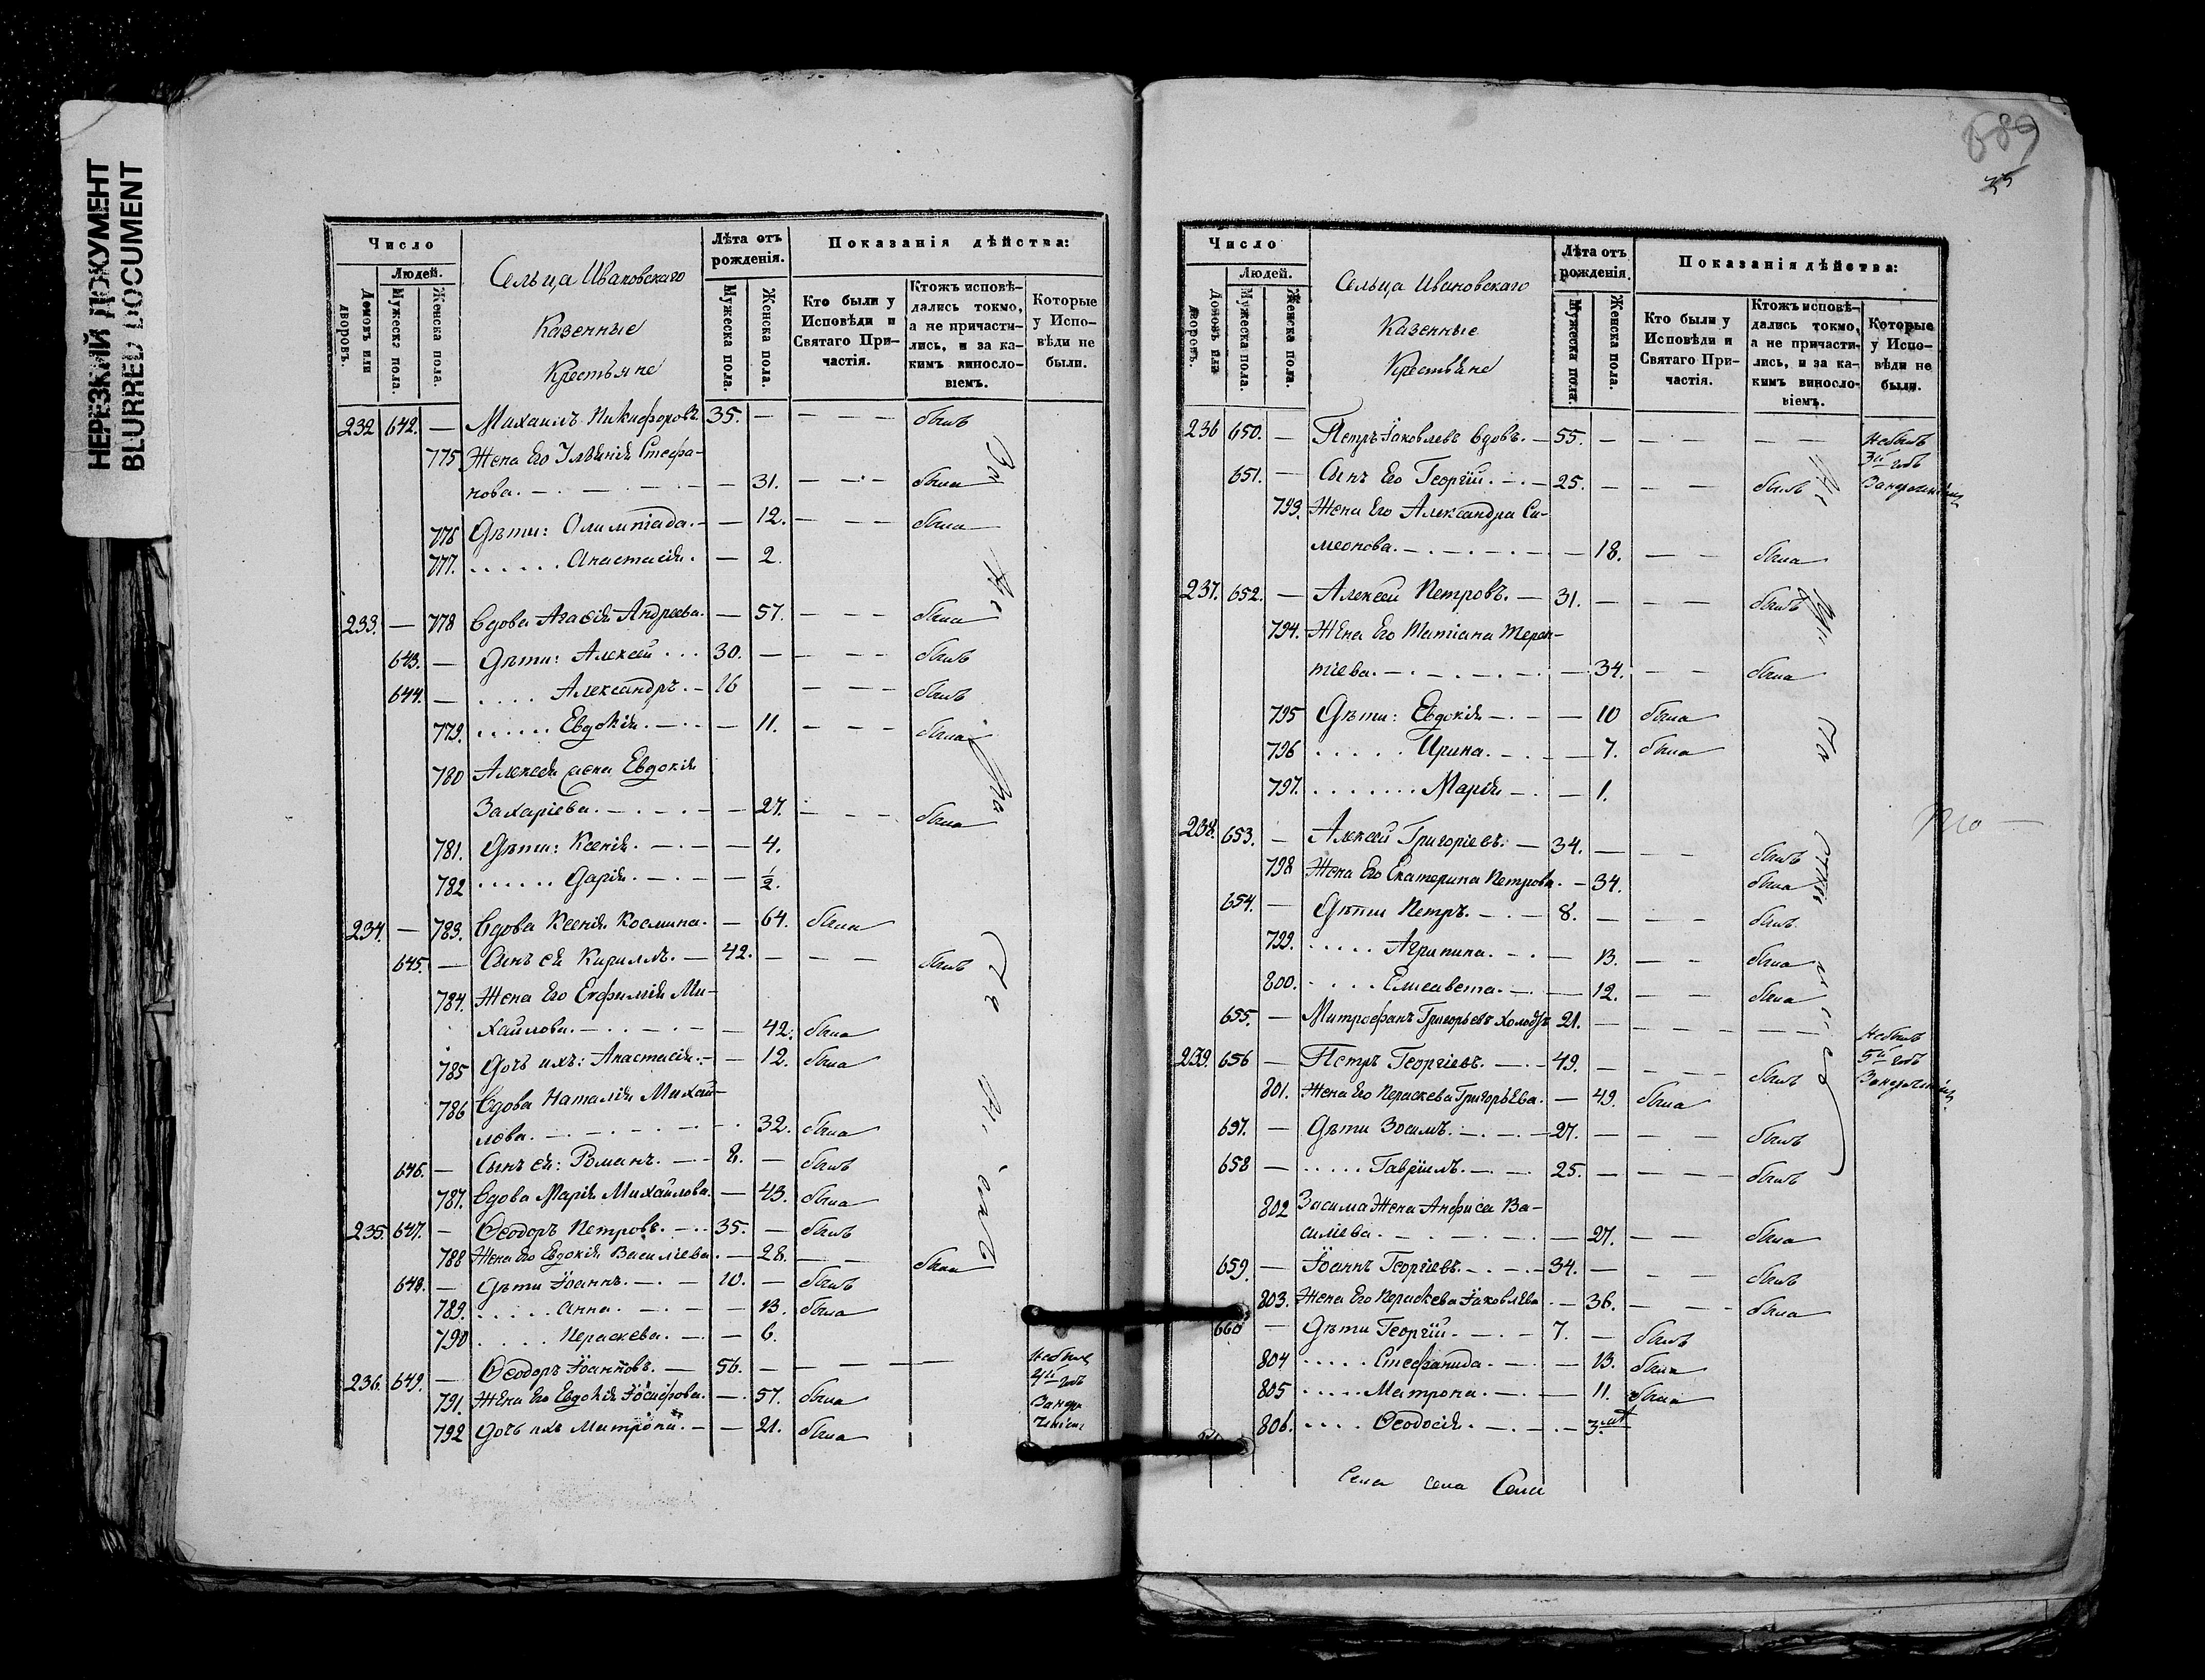 НЕРЕЗКИЙ ДОКУМЕНТ
BLURRED DOCUMENT
Число
Людей.
Домовъ или дворовъ.
Мужеска пола.
Женска пола.
Сельца Ивановскаго
Казенные
Крестьяне
Лѣта отъ рожденія.
Мужеска пола.
Женска пола.
Показанія дѣйства:
Кто были у Исповѣди и Святаго При-
частія.
Ктожъ исповѣ-
дались токмо, а не причасти-
лись, и за ка-
кимъ виносло-
віемъ.
Которые у Испо-
вѣди не были.
232 642. — Михаилъ Никифоровъ. 35. — — — — былъ
775 Жена Его Стефа-
нова. — 31. — — — была
776 Дѣти: Олимпіада. — 12. — — — была
777. Анастасія. — 2.
233. — 778 Вдова Агафія Андреева. — 57. — — — была
643. — Дѣти: Алексей 30. — — — — былъ
644. — Александръ. — 16 — — — былъ
779. Евдокія. — 11. — — — была
780 Алексея жена Евдокія
Захаріева. — 27. — — — была
781. Дѣти: Ксенія. — 4.
782 Дарія. — ½.
234. — 783. Вдова Ксенія Космина. — 64. была
645. — Сынъ ея Кириллъ. — 42. — — — былъ
784 Жена Его Евфимія Ми-
хайлова. — 42. была
785 Дочь ихъ: Анастасія. — 12. была
786 Вдова Наталія Михай-
лова. — 32. была
646. — Сынъ ея: Романъ. — 8. — былъ
787. Вдова Марія Михайлова. — 43. была
235. 647. — Ѳеодоръ Петровъ. — 35. — былъ
788 Жена Его Евдокія Василіева. — 28. — — была
648. — Дѣти Іоаннъ. — 10. — былъ
789. Анна. — 13. была
790 Параскева. — 6.
236. 649. — Ѳеодоръ Іоанновъ. — 56. — — — — Не былъ
4й годъ
791. Жена Его Евдокія Іосифова. — 57. была
792 Дочь ихъ Матрона. — 21. была
589
Число
Людей.
Домовъ или дворовъ.
Мужеска пола.
Женска пола.
Сельца Ивановскаго
Казенные
Крестьяне
Лѣта отъ рожденія.
Мужеска пола.
Женска пола.
Показанія дѣйства:
Кто были у Исповѣди и Святаго При-
частія.
Ктожъ исповѣ-
дались токмо, а не причасти-
лись, и за ка-
кимъ виносло-
віемъ.
Которые у Испо-
вѣди не были.
236 650. — Петръ Іаковлевъ вдовъ. — 55. — — — — — Не былъ
3й годъ
651. — Сынъ Его Георгій. — 25. — — — былъ
793. Жена Его Александра Си-
меонова. — 18. — — была
237. 652. — Алексей Петровъ. — 31. — — — былъ
794. Жена Его Татіана Терен-
тіева. — 34. — — была
795 Дѣти: Евдокія — 10 была
796 Ирина. — 7. была
797. Марія — 1.
238. 653. — Алексей Григоріевъ. — 34. — — — былъ
798 Жена Его Екатерина Петрова. — 34. была
654. — Дѣти Петръ. — 8. — — — былъ
799. Агрипина. — 13. — — была
800. Елисавета. — 12. — — была
655. — Митрофанъ Григорьевъ 21. — — — — — Не былъ
5й годъ
239. 656 — Петръ Георгіевъ. — 49. — — — былъ
801. Жена Его Параскева Григорьева. — 49. была
657. — Дѣти Зосимъ. — 27. — — — былъ
658 — Гавріилъ. — 25. — — — былъ
802 Засима Жена Анфиса Ва-
силіева. — 27. — — была
659. — Іоаннъ Георгіевъ. — 34. — — — былъ
803. Жена Его Параскева Іаковлева — 36. — — была
660 — Дѣти Георгій. — 7. — былъ
804 Стефанида. — 13. была
805 Матрона. — 11. была
806. Ѳеодосія. — 3.
Села села Села